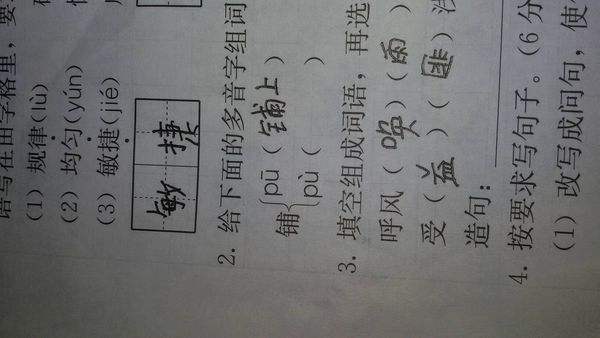 语写在田字格里，要
(1) 规律(lù)
(2) 均匀(yún)
(3) 敏捷(jié)
敏捷
2. 给下面的多音字组词
铺
pū（铺上
pù（
3. 填空组成词语，再选
呼风（唤）（雨
受（益）（匪）浅
造句：
4. 按要求写句子。(6分
(1) 改写成问句，使